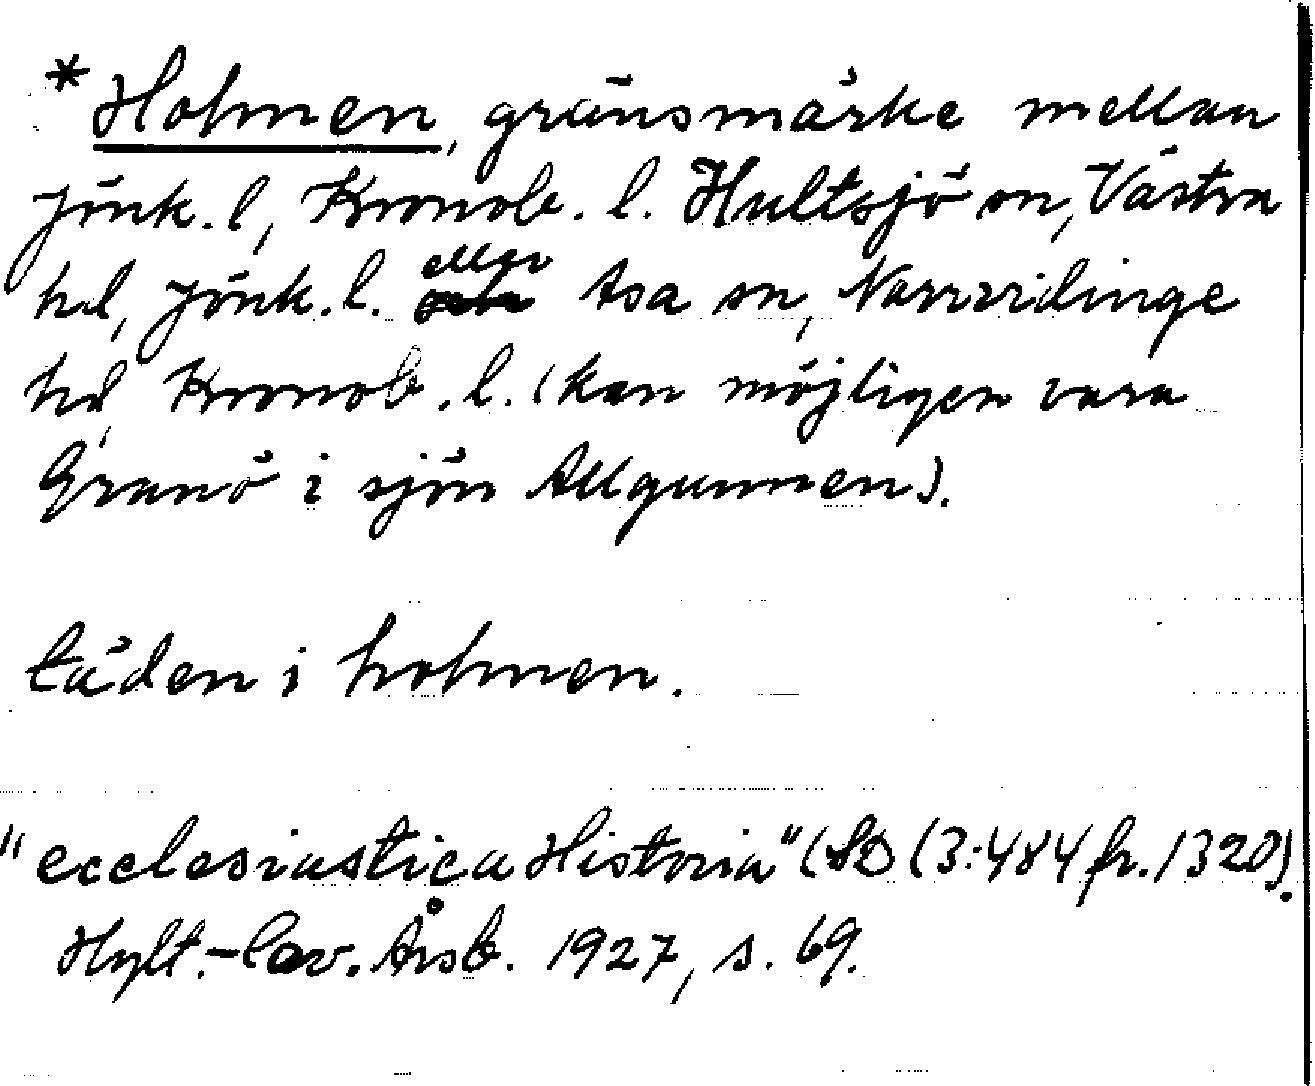 *Holmen, gränsmärke mellan
Jönk. l, Kronob. l. Hultsjö sn, Västra
hd, Jönk. l. eller Asa sn, Norrvidinge
hd, Kronob. l. (kan möjligen vara
Granö i sjön Allgunnen).
täden i holmen.
"ecclesiastica Historia" (SD (3:484 fr. 1320).
Hylt.-Cav. Årsb. 1927, s. 69.